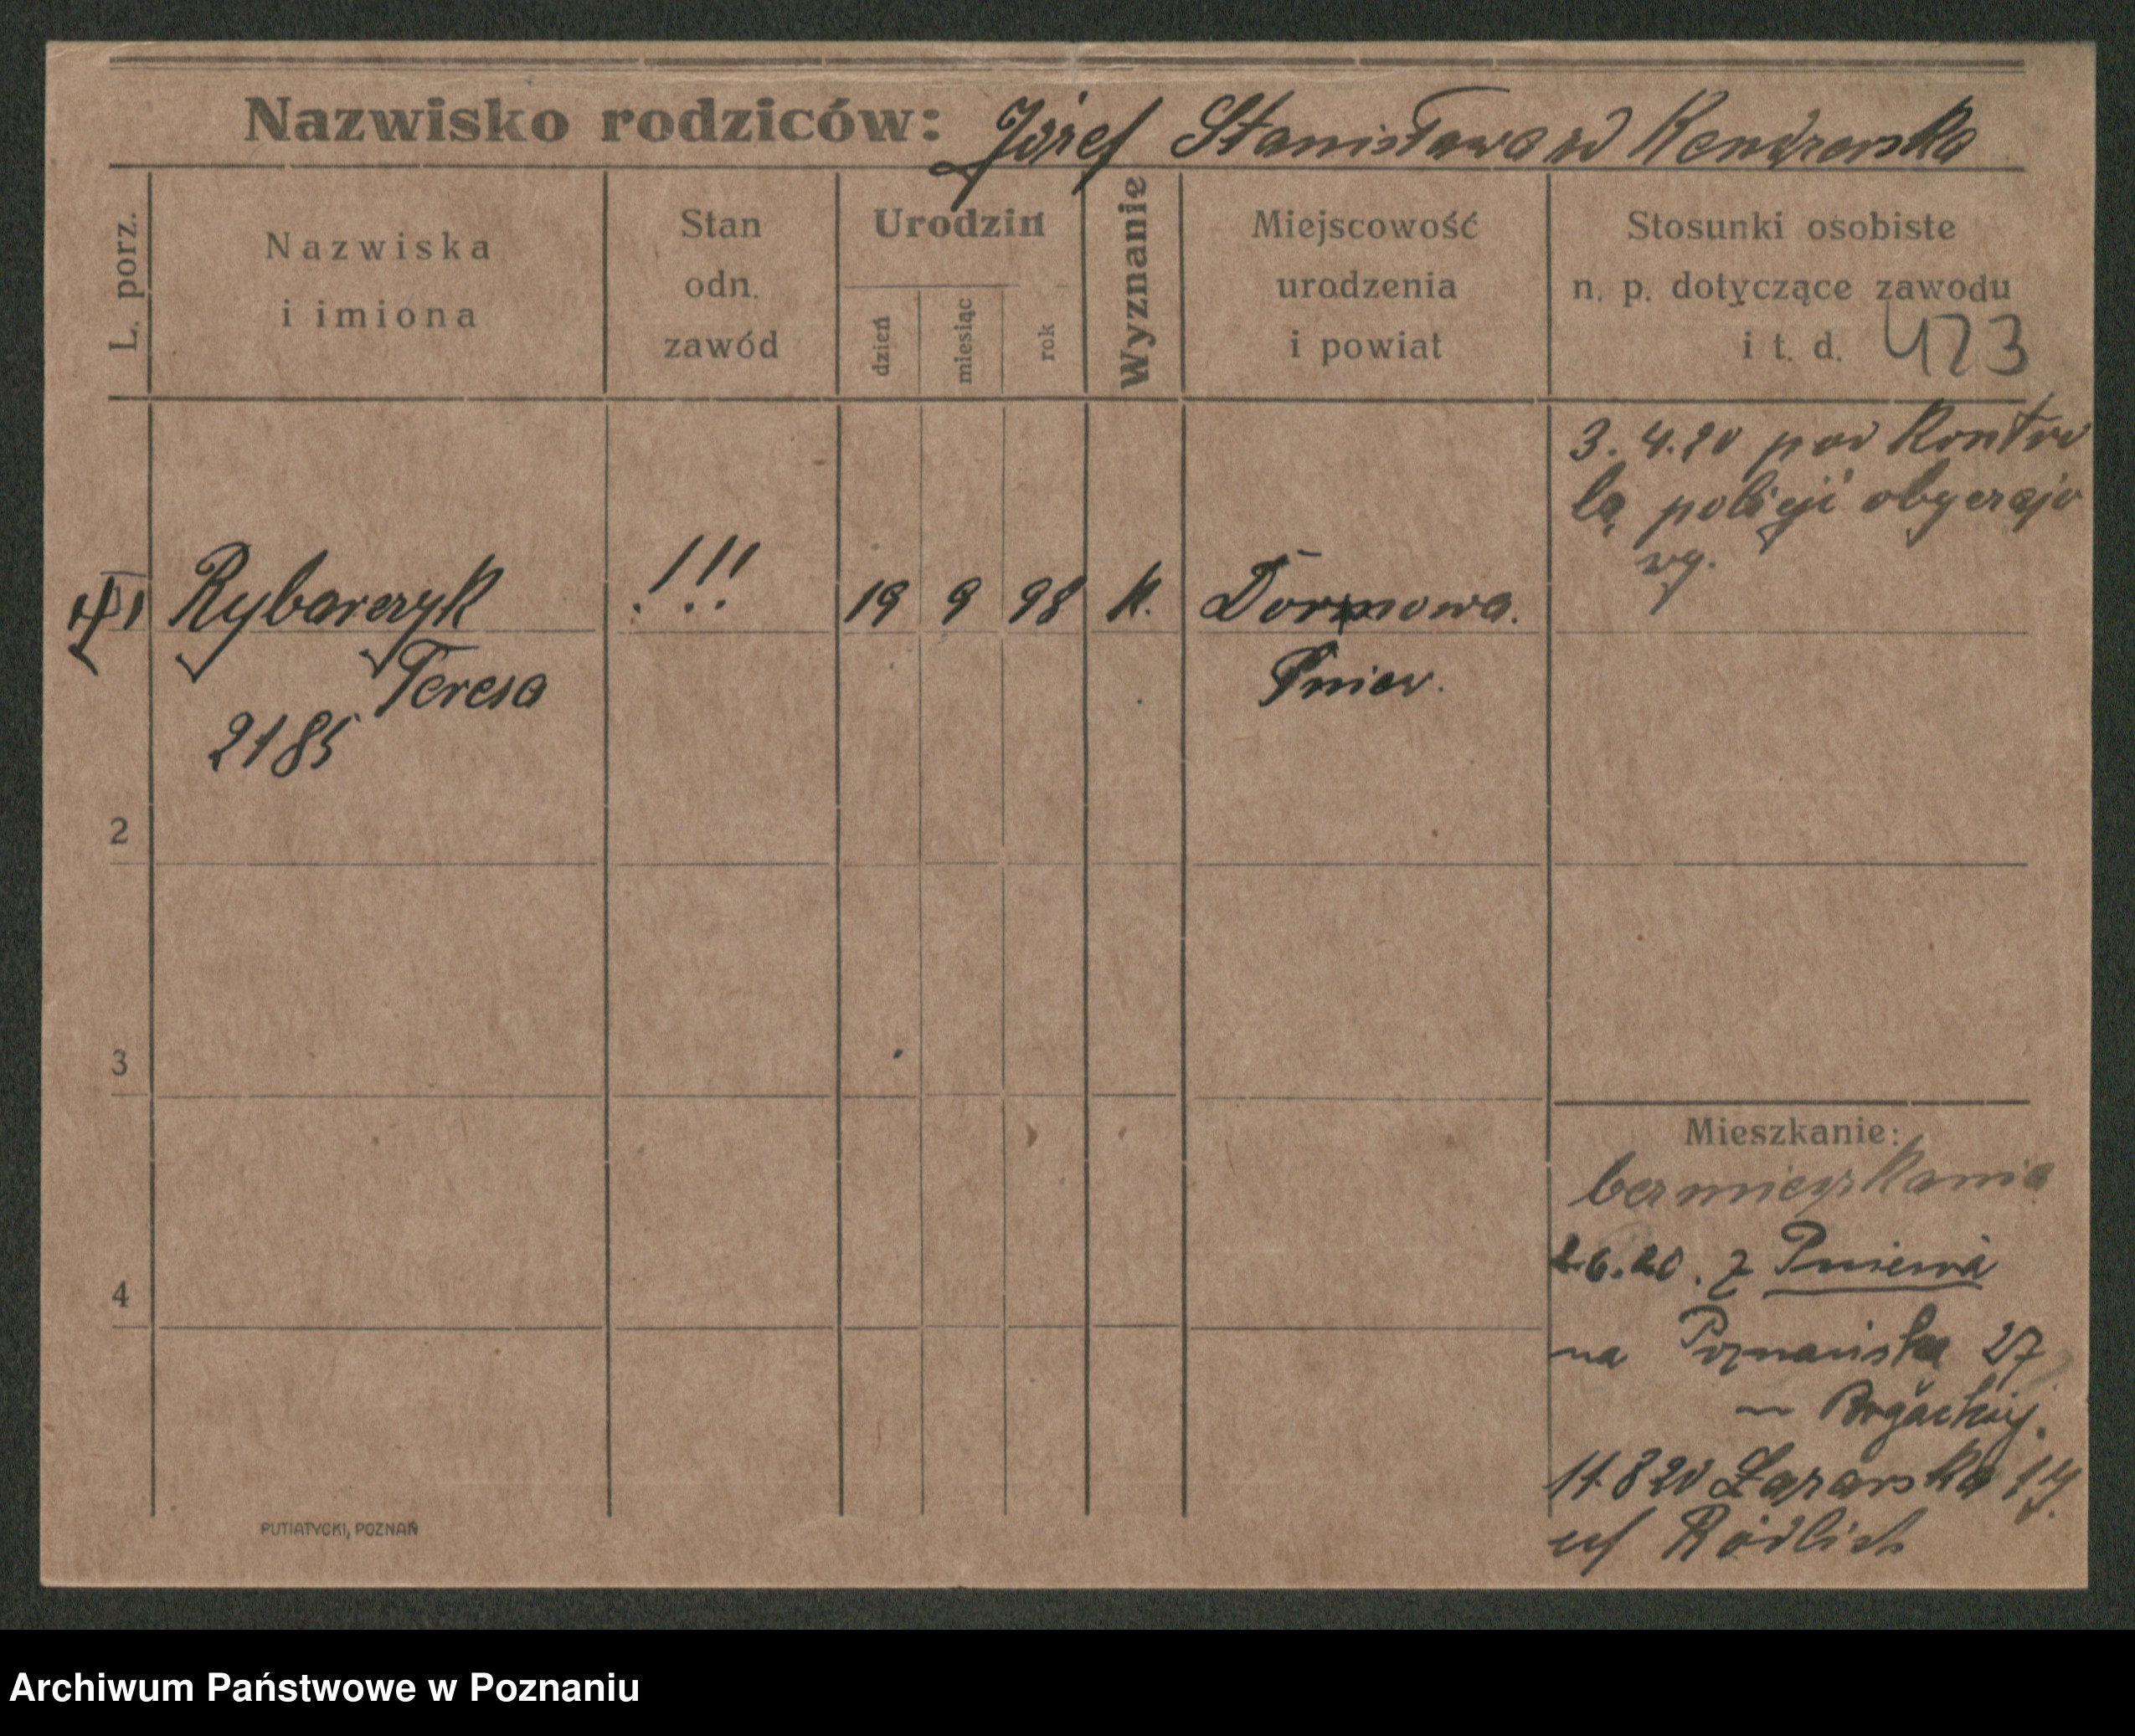 Nazwisko rodziców: Józef Stanisława zd Kendzerska
L. porz.
Nazwiska i imiona
Stan odn. zawód
Urodzin
dzień
miesiąc
rok
Wyznanie
Miejscowość urodzenia i powiat
Stosunki osobiste n. p. dotyczące zawodu i t. d.
423
3. 4.20 pod Kontro
lą policji obyczajo
wy.
1 Rybarczyk !!! 19 9 98 K. Dormowa.
Teresa Pniew.
2185
2
3
4
Mieszkanie:
bezmieszkania
2.6.20. z Pniewa
na Poznańska 27
11.8 20 Łazarska 14.
PUTIATYCKI, POZNAŃ
Archiwum Państwowe w Poznaniu